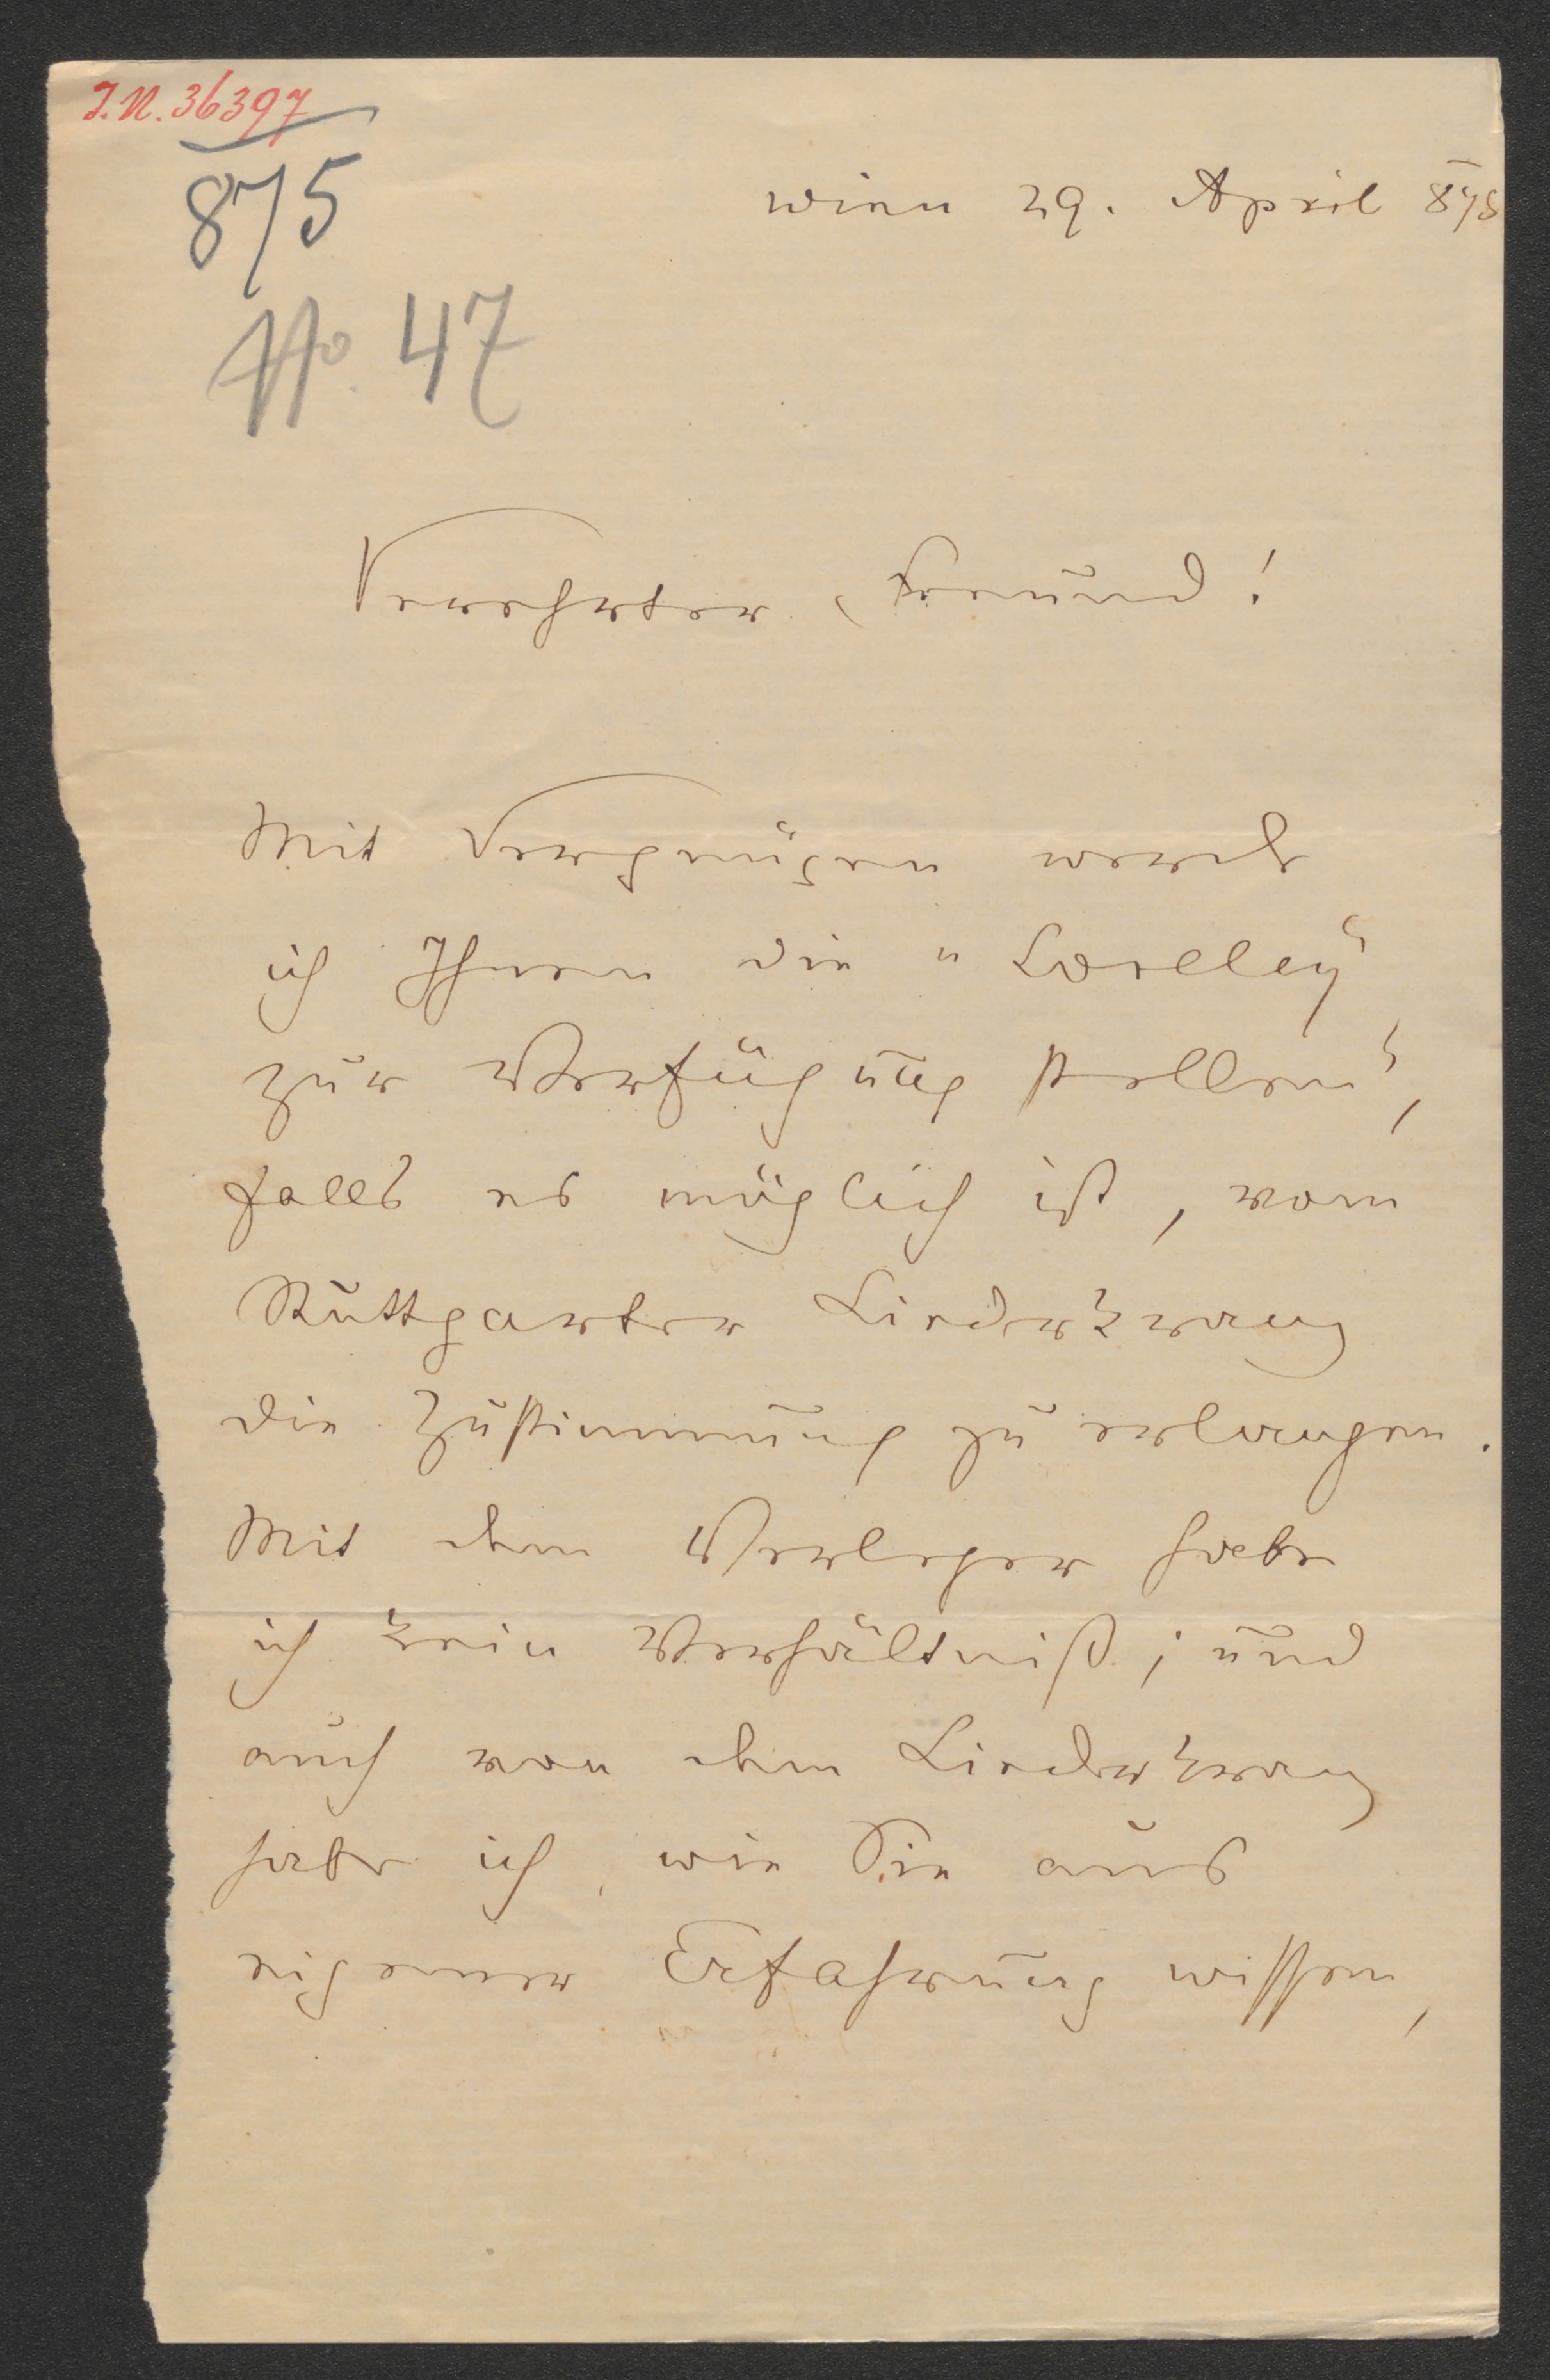 I.N. 36397
875
No. 47
Wien 29. April 875
Verehrter Freund!
Mit Vergnügen werde
ich Ihnen die "Lorelley"
zur Verfügung stellen,
falls es möglich ist, vom
Stuttgarter Liederkranz
die Zustimmung zu erlangen.
Mit dem Verleger habe
ich kein Verhältniß; und
auch von dem Liederkranz
habe ich, wie Sie aus
eigener Erfahrung wissen,